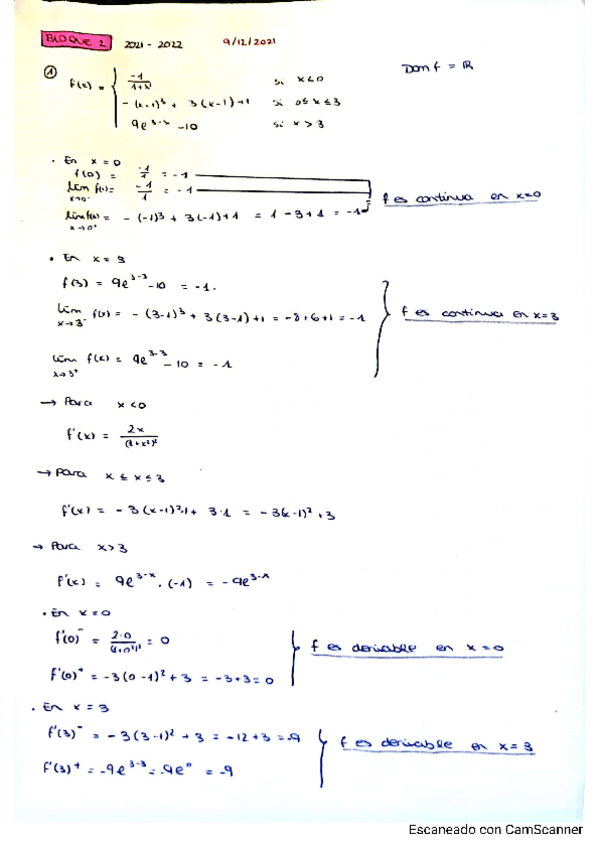 BLOQUE 2 2021 - 2022 9/12/2021
① f(x) = { -1/(1+x²) si x<0 Dom f = ℝ
-(x-1)³ + 3(x-1)+1 si 0≤x≤3
9e^(3-x) -10 si x>3
· En x=0
f(0) = -1/1 = -1
lim f(x) = -1/1 = -1 f es continua en x=0
x→0⁻
lim f(x) = -(-1)³ + 3(-1)+1 = 1-3+1 = -1
x→0⁺
· En x = 3
f(3) = 9e^(3-3) -10 = -1.
lim f(x) = -(3-1)³ + 3(3-1)+1 = -8+6+1 = -1 f es continua en x=3
x→3⁻
lim f(x) = 9e^(3-3) -10 = -1
x→3⁺
→ Para x<0
f'(x) = 2x/(1+x²)²
→ Para x ≤ x ≤ 3
f'(x) = -3(x-1)²·1+ 3·1 = -3(x-1)² + 3
→ Para x>3
f'(x) = 9e^(3-x) · (-1) = -9e^(3-x)
· En x=0
f'(0)⁻ = 2·0/(1+0²)² = 0 f es derivable en x=0
f'(0)⁺ = -3(0-1)² + 3 = -3+3 = 0
· En x = 3
f'(3)⁻ = -3(3-1)² + 3 = -12+3 = -9 f es derivable en x=3
f'(3)⁺ = -9e^(3-3) = -9e⁰ = -9
Escaneado con CamScanner